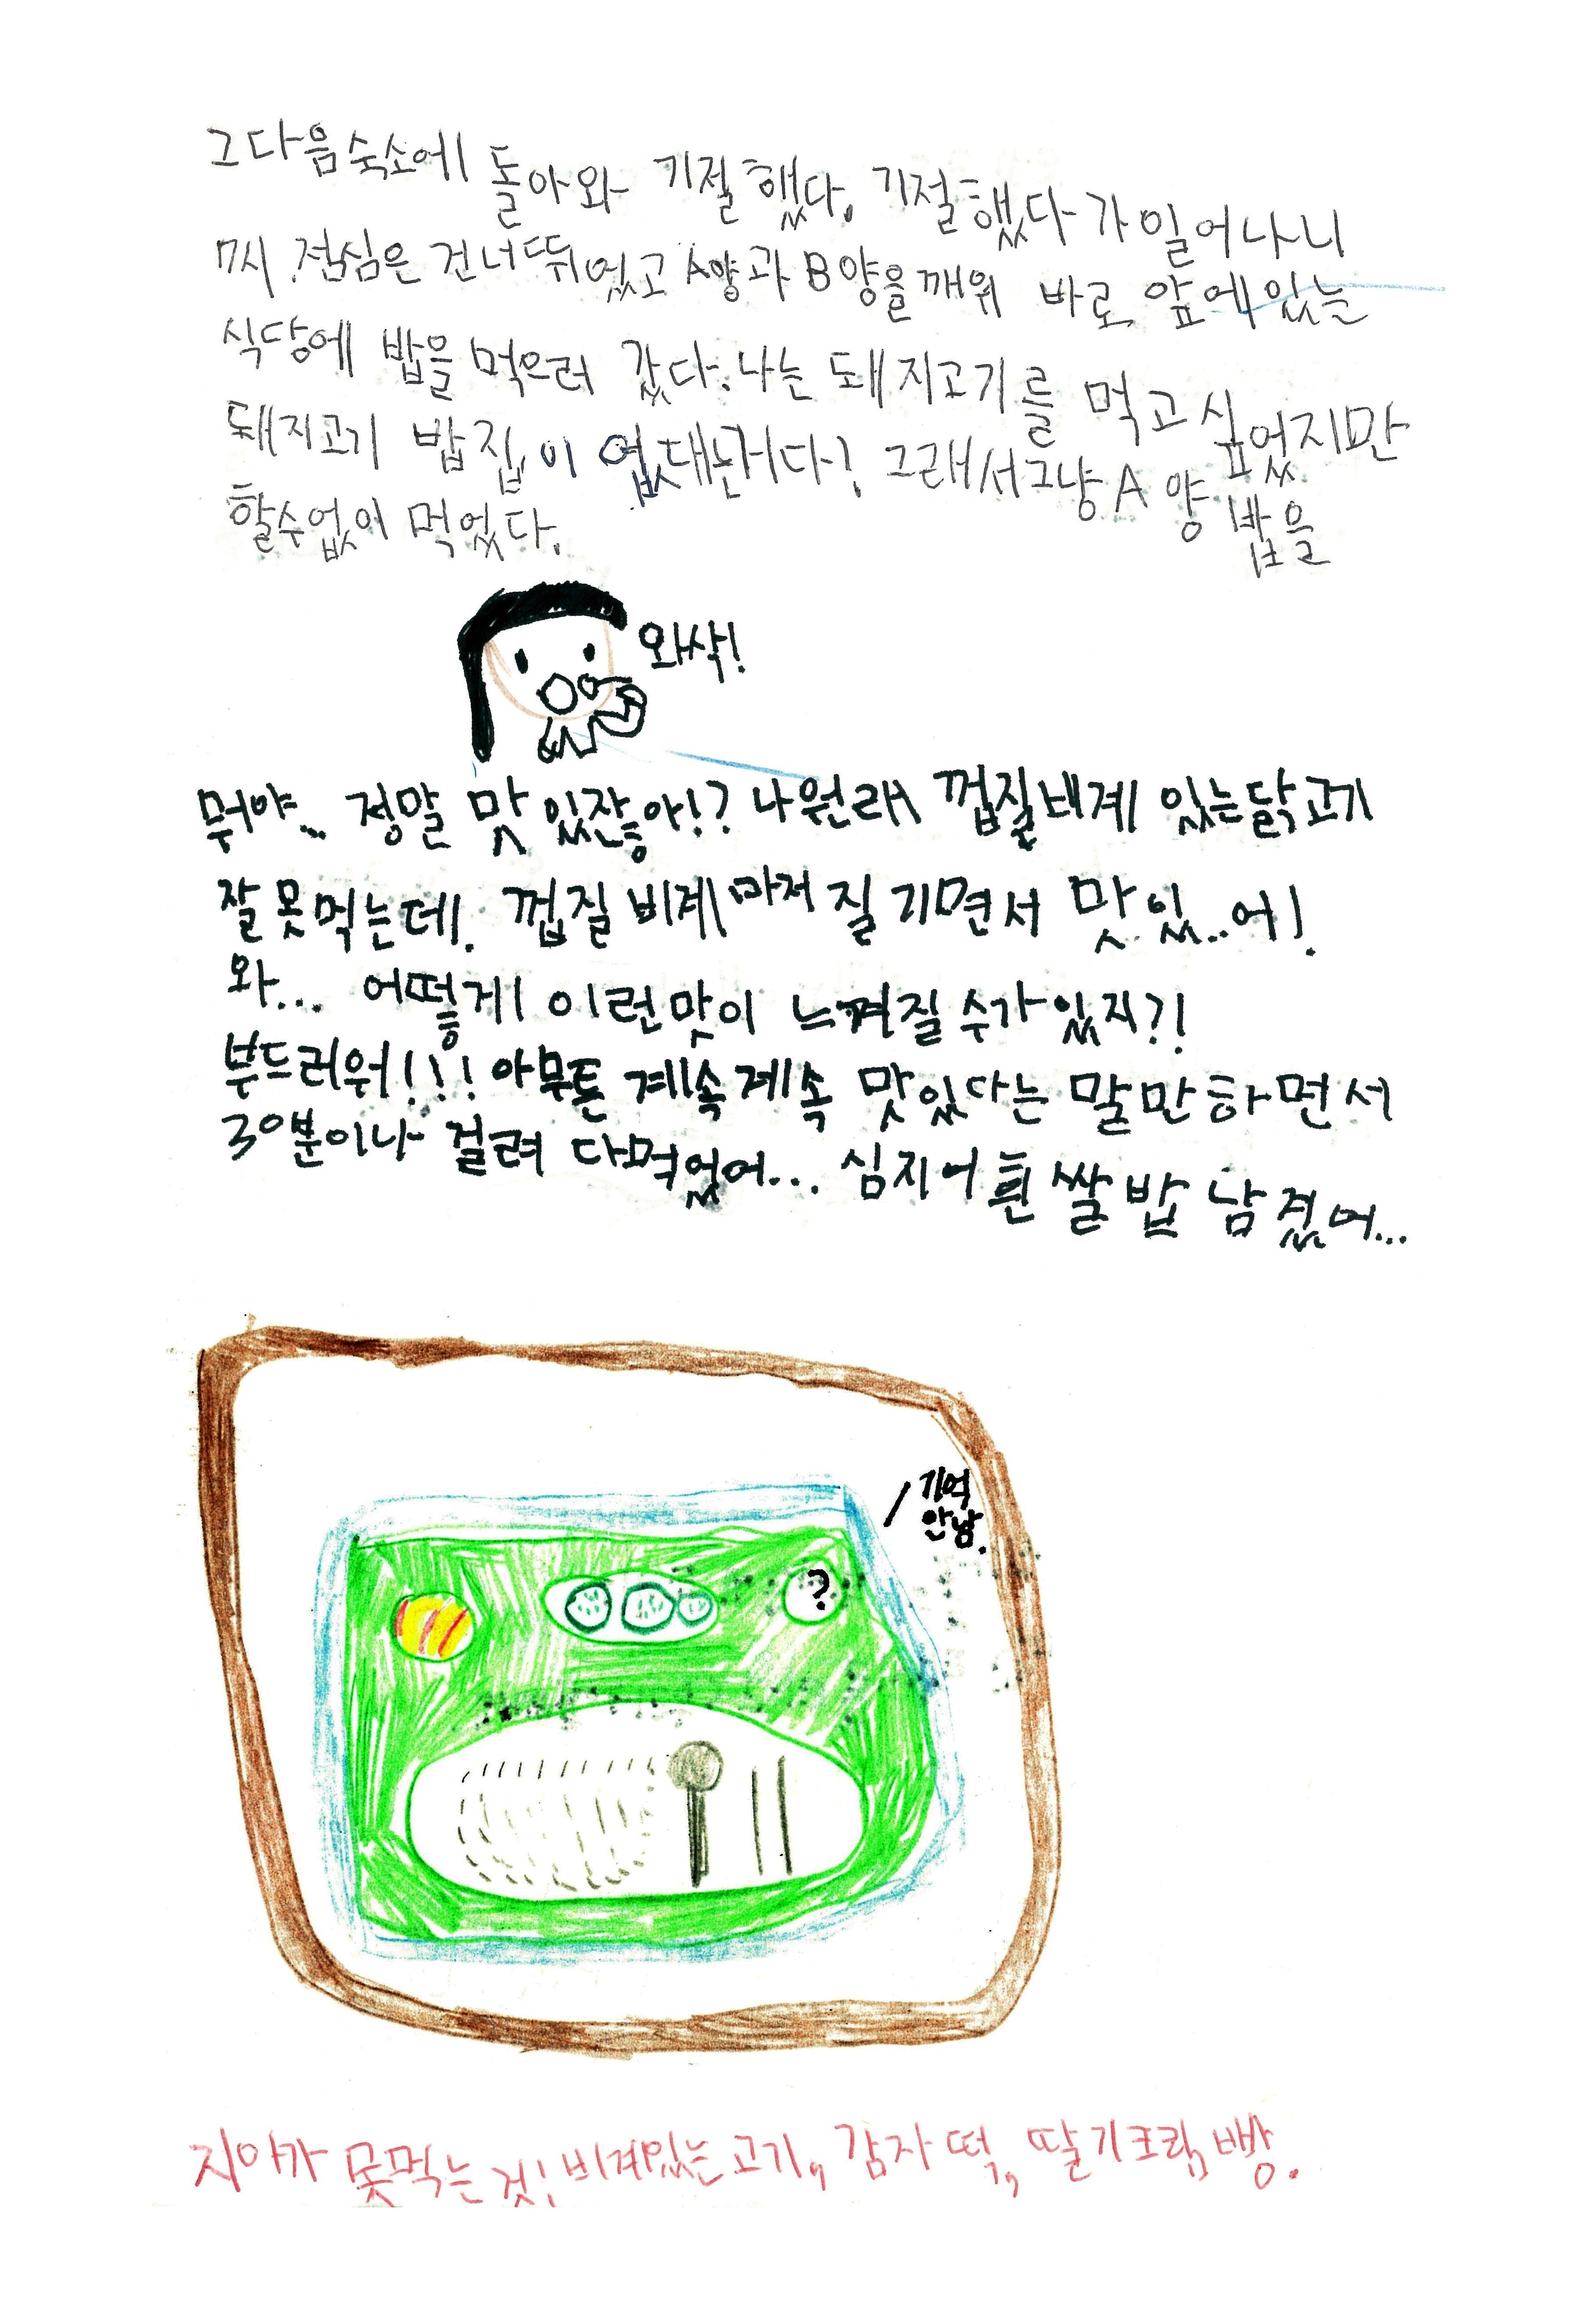 그다음숙소에 돌아와 기절했다. 기절했다가 일어나니
7시. 점심은 건너뛰었고 A양과 B양을깨워 바로 앞에있는
식당에 밥을 먹으러 갔다. 나는 돼지고기를 먹고싶었지만
돼지고기 밥집이 없대는거다?. 그래서그냥 A양 밥을
할수없이 먹었다.
와삭!
뭐야... 정말 맛있잖아!? 나원래 껍질비계 있는닭고기
잘못먹는데. 껍질비계마저 질기면서 맛있..어!.
와... 어떻게 이런맛이 느껴질수가있지?!
부드러워!!! 아무튼 계속계속 맛있다는 말만하면서
30분이나 걸려 다먹었어... 심지어 흰쌀밥남겼어...
기억
안남.
?
지아가 못먹는것! 비계있는고기, 감자떡, 딸기크림빵.